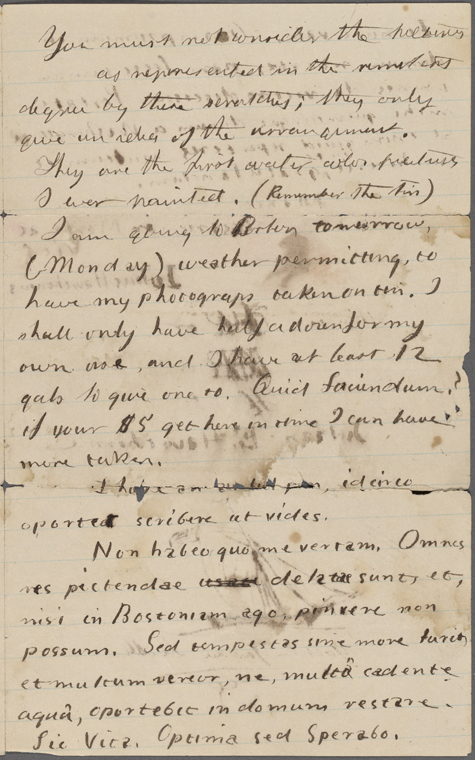 You must not consider the pictures
as represented in the remotest
degree by these scratches; they only
give an idea of the arrangement
They are the first water color pictures
I ever painted. (Remember the tin)
I am going to Boston tomorrow,
(Monday) weather permitting, to
have my photograps taken on tin. I
shall only have half a dozen for my
own use, and I have at least 12
gals to give one to. Quid faciendum?
if your $5 get here in time I can have
more taken.
I have an pen, idcirco
oportet scribere ut vides.
Non habeo quo me vertam. Omnes
res pictendae delatae sunt, et,
nisi in Bostoniam ago, pinvere non
possum. Sed tempestas sine more furit
et multum vereor, ne, multâ cadente
aquâ, oportebit in domum restare.
Sic Vita. Optima sed Sperabo.